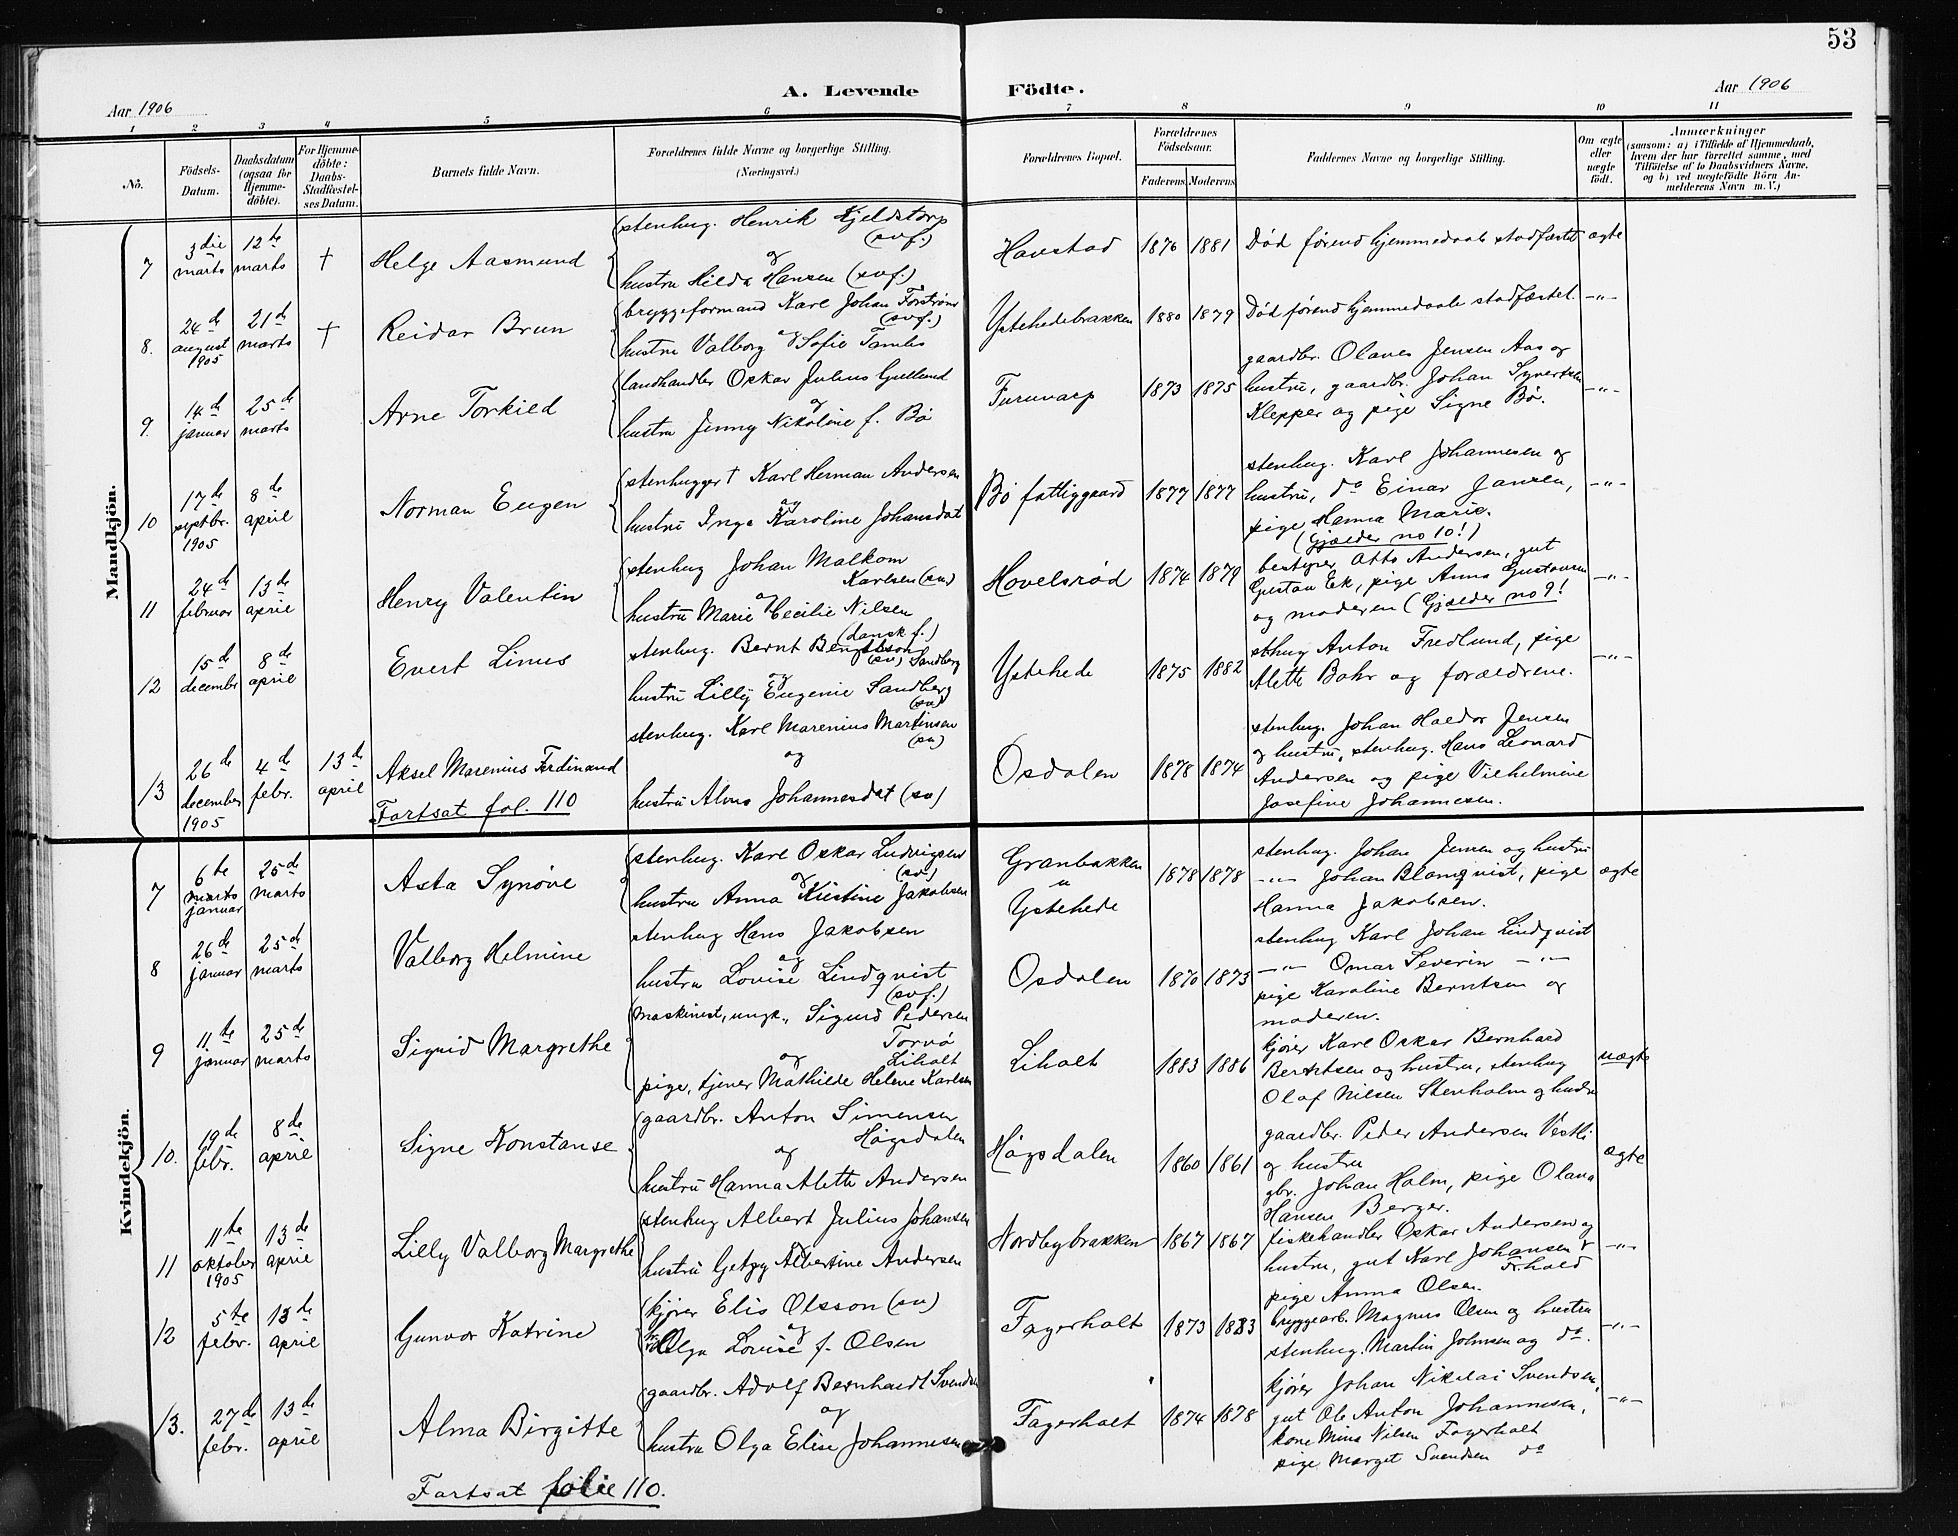 53
A. Levende Födte.
Aar 1906
Aar 1906
1 2 3 4 5 6 7 8 9 10 11
No.
Födsels-
Datum.
Daabsdatum
(ogsaa for
Hjemme-
döbte).
For Hjemme-
döbte:
Daabs-
Stadfæstel-
ses Datum.
Barnets fulde Navn.
Forældrenes fulde Navne og borgerlige Stilling.
(Næringsvei.)
Forældrenes Bopæl.
Forældrenes
Födselsaar.
Faderens Moderens
Faddernes Navne og borgerlige Stilling.
Om ægte
eller
uægte
født.
Anmærkninger
(saasom: a) i Tilfælde af Hjemmedaab,
hvem der har forrettet samme, med
Tilföielse af to Daabsvidners Navne,
og b) ved uægtefödte Börn An-
melderens Navn m. V.)
Mandkjön.
7
3die
marts
12te
marts
†
Helge Aasmund
stenhug. Henrik Kjeldstorp
(svf.)
og
hustru Hilda Hansen (svf.)
Havstad
1876 1881
Död førend hjemmedaab stadfæstet
ægte
8.
24de
august
1905
21de
marts
†
Reidar Brun
bryggeformand Karl Johan Forstrøm
(svf.)
og
hustru Valborg Sofie Tambs
Ystehedebrakken
1880 1879
Död førend hjemmedaab stadfæstet.
-"-
9.
14de
januar
25de
marts
Arne Torkild
landhandler Oskar Julius Gullund
og
hustru Jenny Nikoline f. Bø
Furuvarp
1873 1875
gaardbr. Olaves Jensen Aas og
hustru, gaardbr. Johan Syvertsen
Klepper og pige Signe Bø.
-"-
10
17de
septbr.
1905
8de
april
Norman Eugen
stenhugger † Karl Herman Andersen
og
hustru Inga Karoline Johansdat
Bø fattiggaard
1877 1877
stenhug. Karl Johannesen og
hustru, do Einar Jansen,
pige Hanna Marie.
(Gjælder no 10!)
-"-
11
24de
februar
13de
april
Henry Valentin
stenhug Johan Malkom
Karlsen (sv)
og
hustru Marie Cecilie Nilsen
(dansk f.)
Hovelsrød
1874 1879
bestyrer Otto Andersen, gut
Gustav Ek, pige Anna Gustavsen
og moderen (Gjælder no 9!
-"-
12
15de
decembr
8de
april
Evert Linus
stenhug. Bernt Bengtsson
(sv) Sandberg
og
hustru Lilly Eugenie Sandberg
(sv)
Ystehede
1875 1882
sthug Anton Fredlund, pige
Alette Bohr og forældrene.
-"-
13
26de
december
1905
4de
febr.
13de
april
Aksel Marenius Ferdinand
Fortsat fol. 110
stenhug. Karl Marenius Martinsen
(sv)
og
hustru Alma Johannesdat (sv)
Osdalen
1878 1874
stenhug. Johan Haldor Jensen
og hustru, stenhug. Hans Leonard
Andersen og pige Vilhelmine
Josefine Johannesen.
Kvindekjön.
7
6te
marts
januar
25de
marts
Asta Synøve
stenhug. Karl Oskar Ludvigsen
(sv)
og
hustru Anna Kristine Jakobsen
Granbakken
Ystehede
1878 1878
stenhug. Johan Jensen og hustru
-"- Johan Blomqvist, pige
Hanna Jakobsen.
ægte
8
26de
januar
25de
marts
Valborg Helmine
stenhug Hans Jakobsen
og
hustru Lovise Lindqvist
(svf.)
Osdalen
1870 1873
stenhug Karl Johan Lindqvist
-"- Omar Severin -"-
pige Karoline Berntsen og
moderen.
9
11te
januar
25de
marts
Sigrid Margrethe
maskinist, ungk., Sigurd Pedersen
Torvø
og Liholt
pige, tjener Mathilde Helene Karlsen
Liholt
1883 1886
kjører Karl Oskar Bernhard
Berntsen og hustru, stenhug
Olaf Nilsen Stenholm og hustru
uægte
10.
19de
febr.
8de
april
Signe Konstanse
gaardbr. Anton Simensen
Høgsdalen
og
hustru Hanna Alette Andersen
Høgsdalen
1860 1861
gaardbr. Peder Andersen Vestli
og hustru
gbr. Johan Holm, pige Olava
Hansen Berger.
ægte
11
11te
oktober
1905
13de
april
Lilly Valborg Margrethe
stenhug Albert Julius Johansen
og
hustru Getzy Albertine Andersen
Nordbybrakken
1867 1867
fiskehandler Oskar Andersen og
hustru, gut Karl Johansen
pige Anna Olsen.
-"-
12
5te
febr.
13de
april
Gunvor Katrine
kjører Elis Olsson (sv)
og
Olga Lovise f. Olsen
Fagerholt
1873 1883
bryggearb. Magnus Olsen og hustru
stenhug. Martin Johnsen og do.
-"-
13.
27de
febr.
13de
april
Alma Birgitte
gaardbr. Adolf Bernhardt Svendsen
og
hustru Olga Elise Johannesen
Fagerholt
1874 1878
kjører Johan Nikolai Svendsen,
gut Ole Anton Johannesen,
kone Mina Nilsen Fagerholt
pige Marget Svendsen do
-"-
Fortsat folie 110.